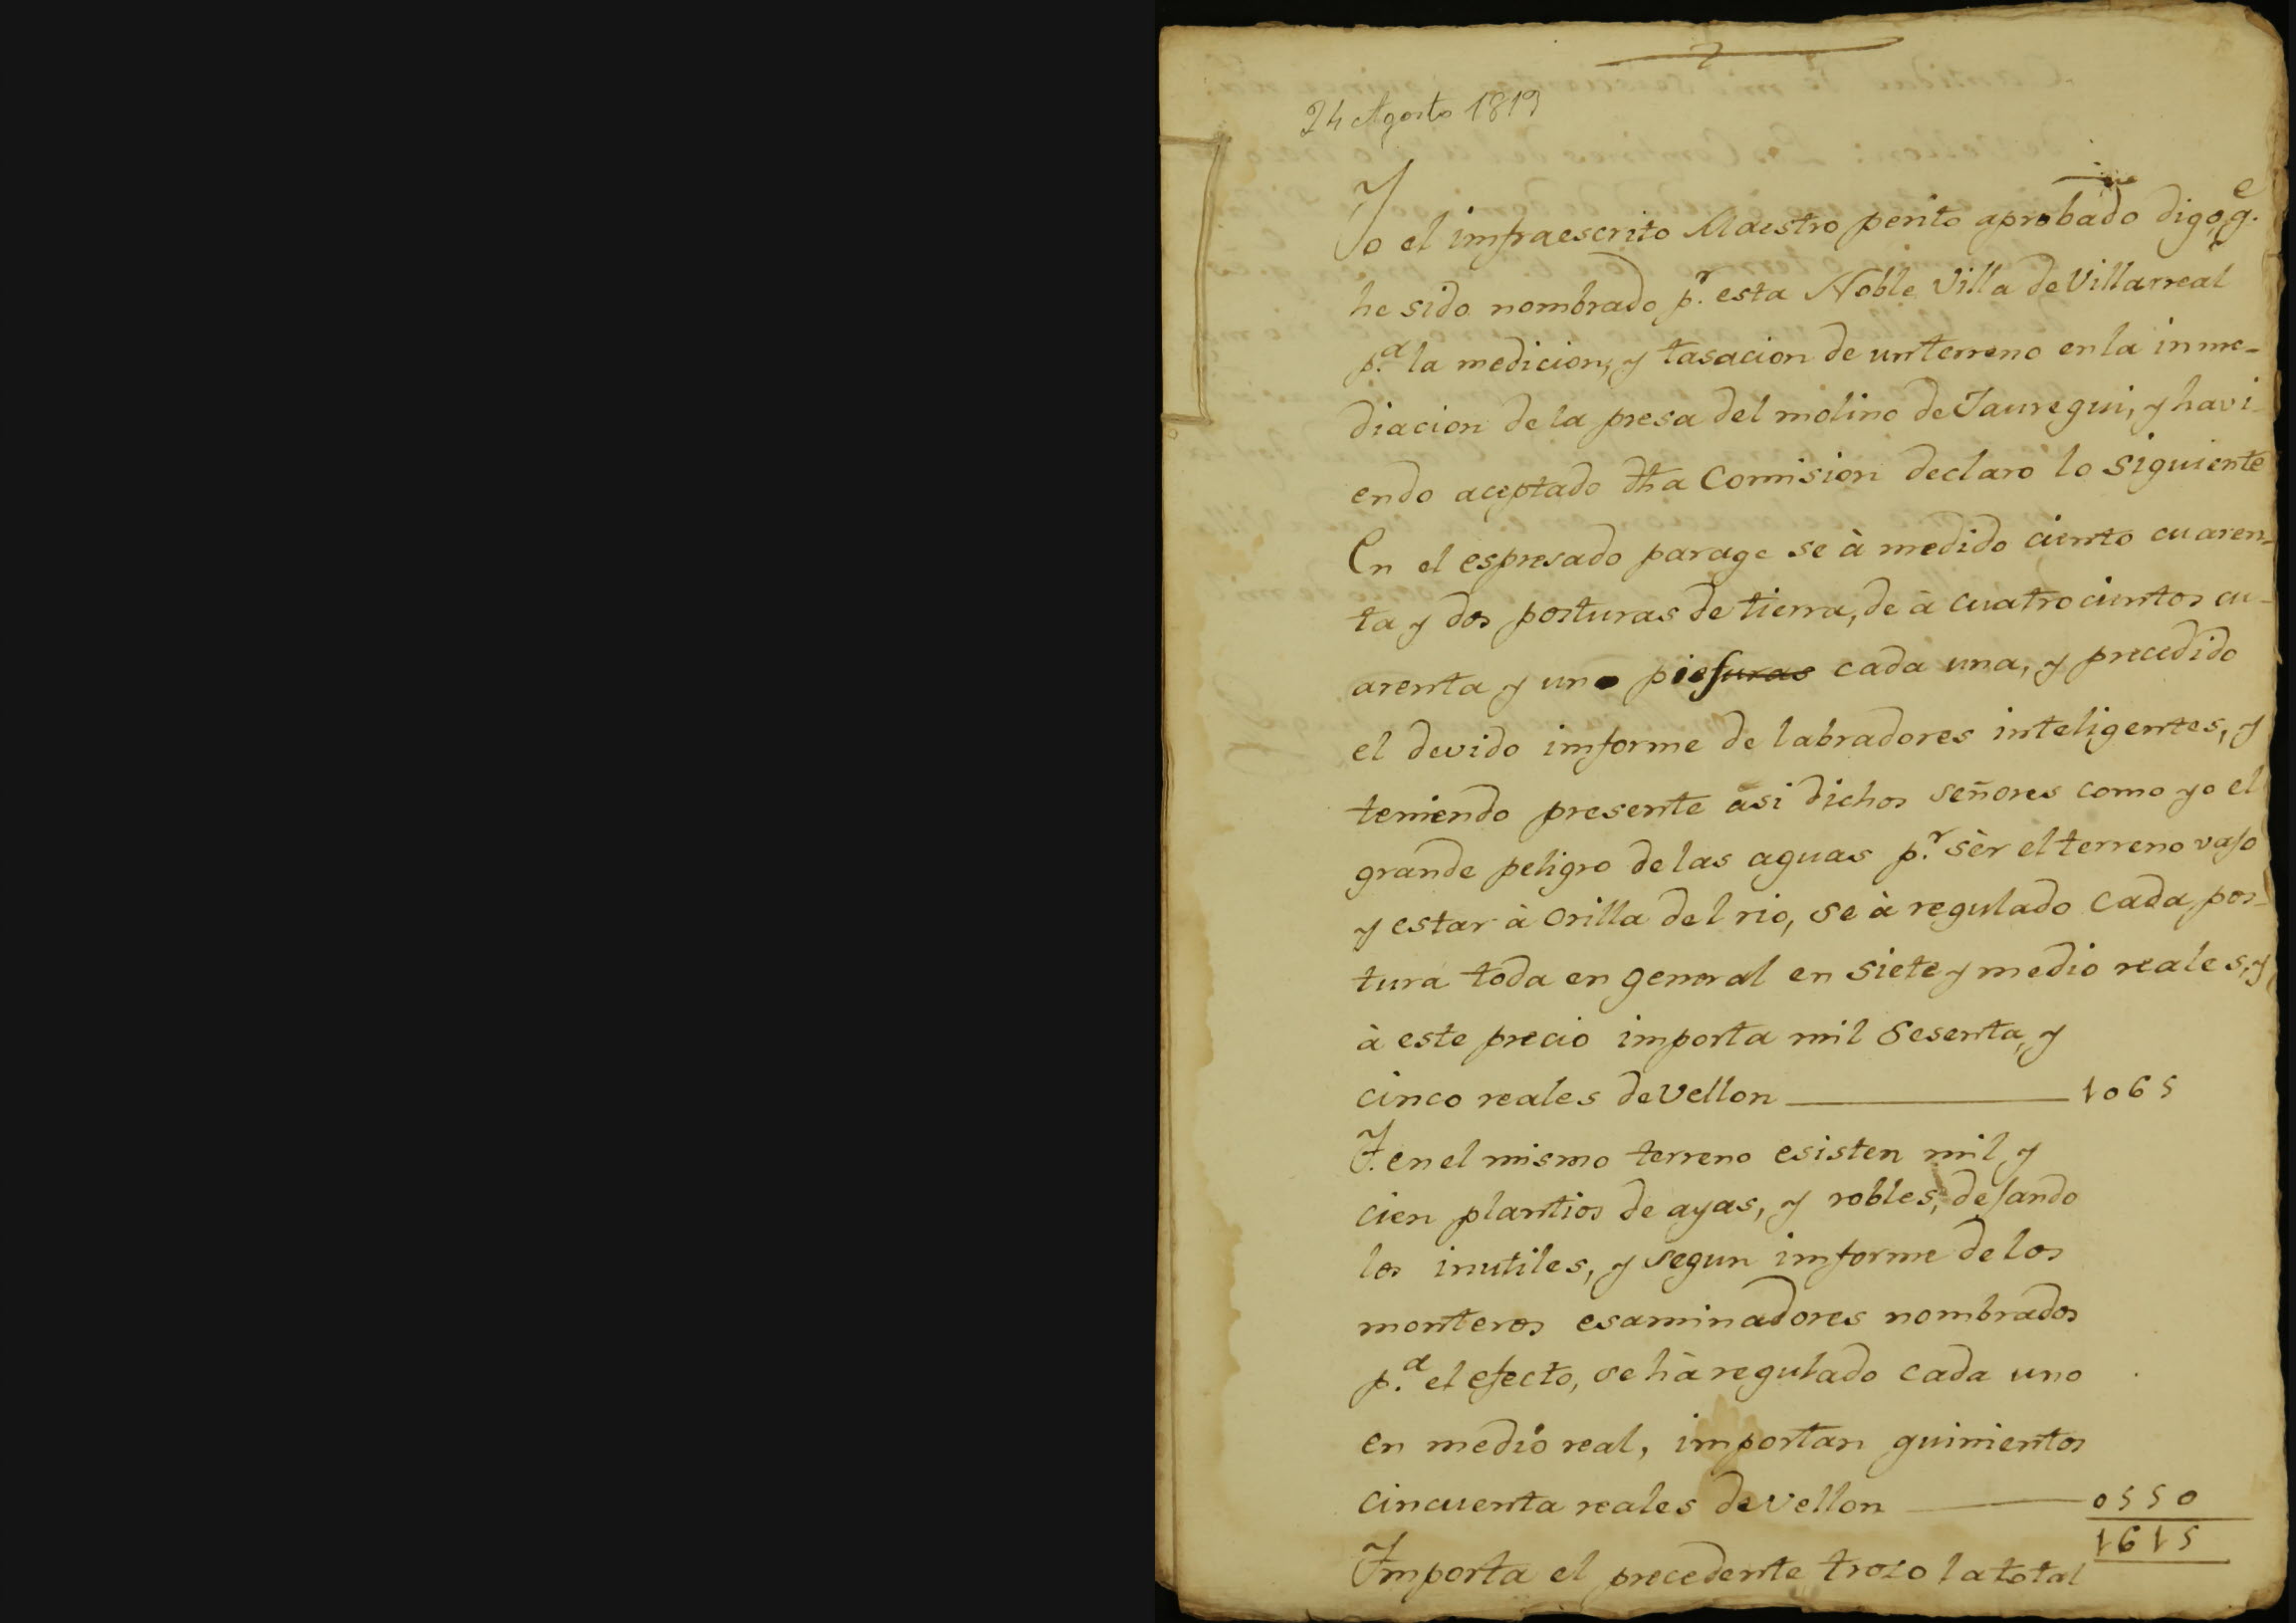 24 Agosto 1819
Yo el imfraescrito Maestro perito aprobado digo, q.e
he sido nombrado p.r esta Noble Villa de Villarreal
p.a la medicion, y tasacion de un terreno en la inme-
diacion de la presa del molino de Jauregui, y havi-
endo aceptado dha Comision declaro lo siguiente
En el espresado parage se à medido ciento cuaren-
ta y dos posturas de tierra, de à cuatrocientos cu-
arenta y uno pies cada una, y precedido
el devido imforme de labradores inteligentes, y
teniendo presente asi dichos señores como yo el
grande peligro de las aguas p.r sèr el terreno vajo
y estar à orilla del rio, se à regulado cada pos-
tura toda en general en siete y medio reales, y
à este precio importa mil sesenta, y
cinco reales de vellon ——— 1065
Y. en el mismo terreno esisten mil y
cien plantios de ayas, y robles, dejando
los inutiles, y segun imforme de los
monteros esaminadores nombrados
p.a el efecto, se hà regulado cada uno
en medio real, importan quinientos
cincuenta reales de vellon ——— 0550
1615
Importa el precedente trozo la total